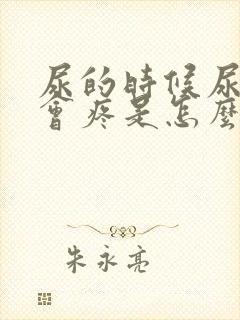 尿的時候尿
會疼是怎麼
朱永亮